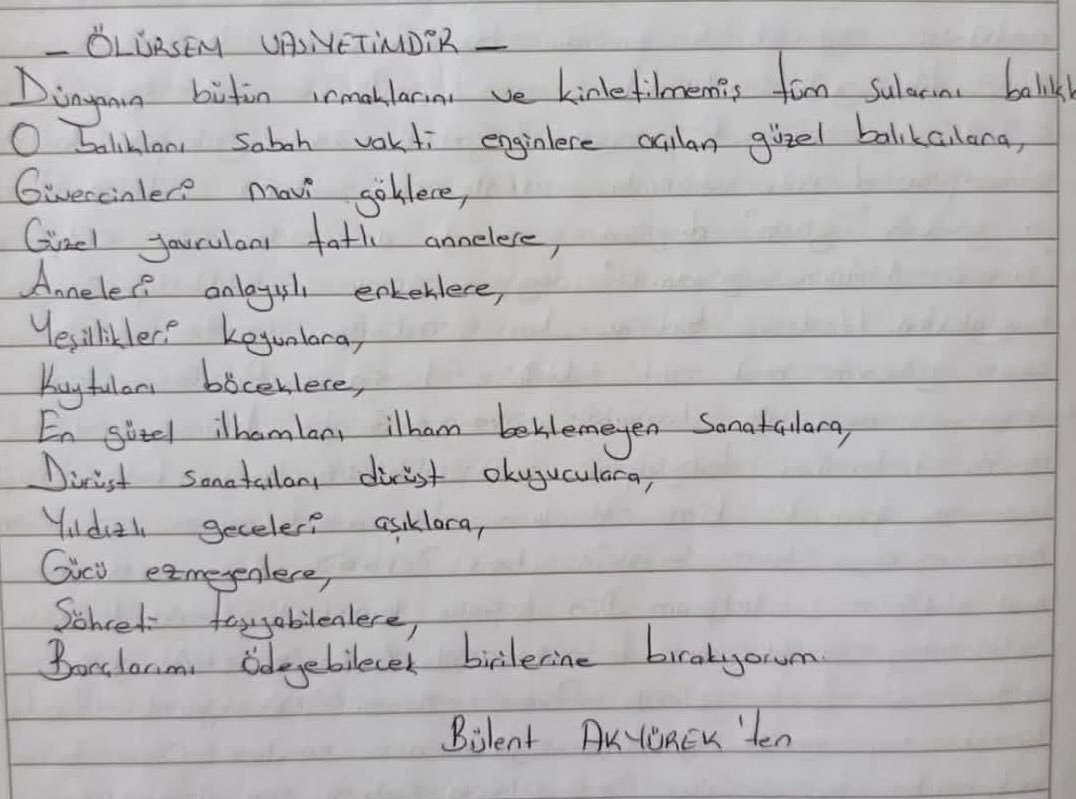 - ÖLÜRSEM VASİYETİMDİR -
Dünyanın bütün ırmaklarını ve kirletilmemiş tüm sularını
O balıkları sabah vakti enginlere açılan güzel balıkçılara,
Güvercinleri mavi göklere,
Güzel yavruları tatlı annelere,
Anneleri anlayışlı erkeklere,
Yeşillikleri koyunlara,
Kuytuları böceklere,
En güzel ilhamları ilham beklemeyen sanatçılara,
Dürüst sanatçıları dürüst okuyuculara,
Yıldızlı geceleri aşıklara,
Gücü ezmeyenlere,
Şöhreti taşıyabilenlere,
Borçlarımı ödeyebilecek birilerine bırakıyorum.
Bülent AKYÜREK 'ten